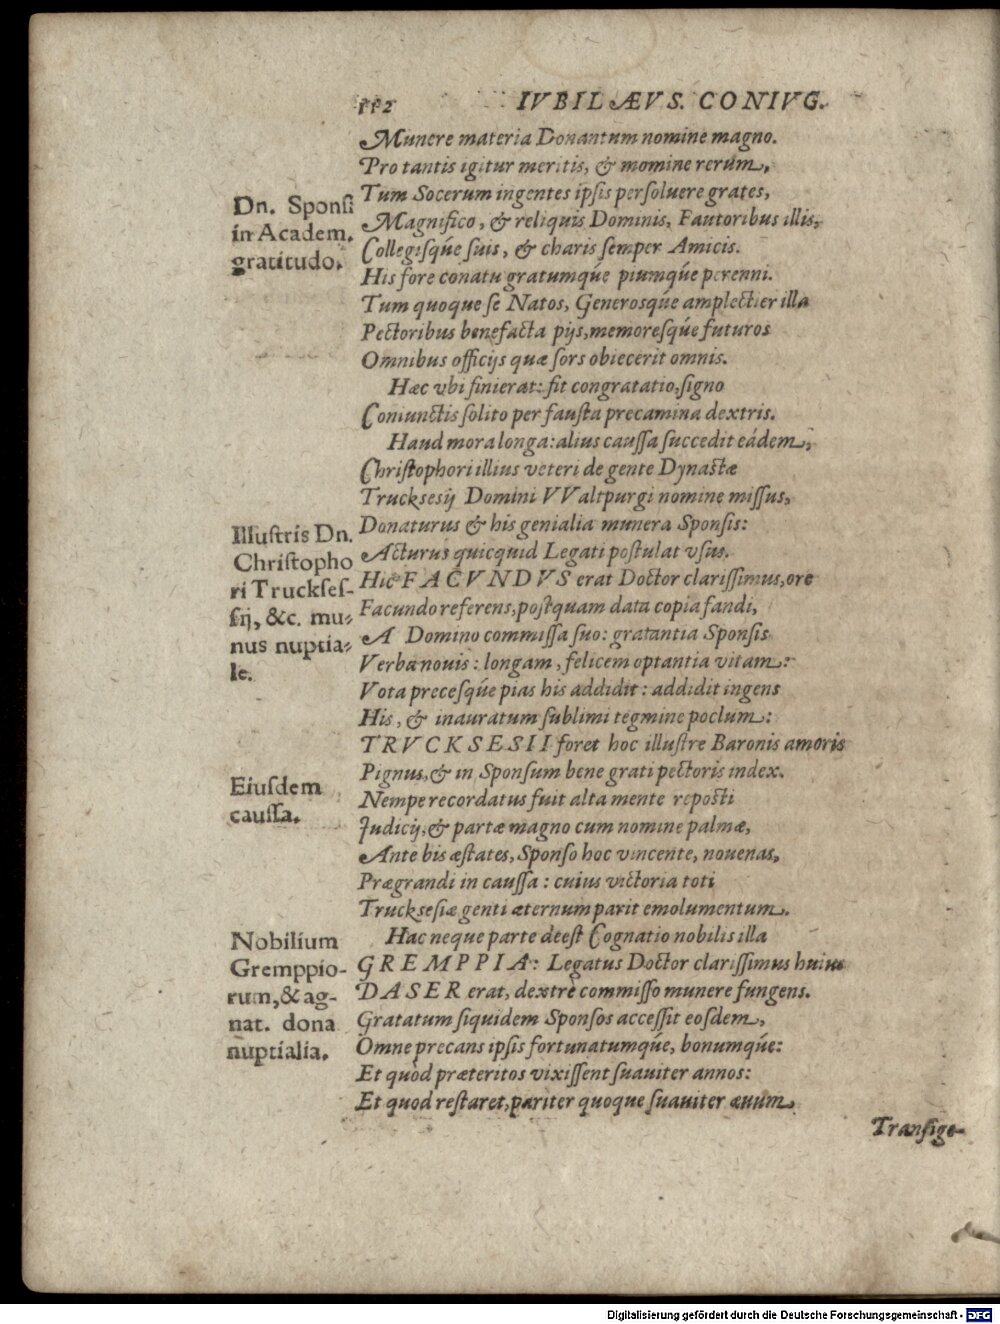 112 IVBILÆVS. CONIVG.
Munere materia Donantum nomine magno.
Pro tantis igitur meritis, & momine rerum,
Tum Socerum ingentes ipsis persoluere grates,
Dn. Sponsi
in Academ.
gratitudo.
Magnifico, & reliquis Dominis, Fautoribus illis,
Collegisq́ue suis, & charis semper Amicis.
His fore conatu gratumque piumq́ue perenni.
Tum quoque se Natos, Generosque amplectier illa
Pectoribus benefacta pijs, memoresq́ue futuros
Omnibus officijs quæ sors obiecerit omnis.
Hæc vbi finierat: fit congratatio, signo
Coniunctis solito per fausta precamina dextris.
Haud mora longa: alius caussa succedit eâdem,
Christophori illius veteri de gente Dynastæ
Trucksesij Domini VValtpurgi nomine missus,
Donaturus & his genialia munera Sponsis:
Illustris Dn.
Christopho
ri Truckses-
sij, &c. mu-
nus nuptia-
le.
Acturus quicquid Legati postulat vsus.
Hic FACVNDVS erat Doctor clarissimus, ore
Facundo referens, postquam data copia fandi,
A Domino commissa suo: gratantia Sponsis
Verba nouis: longam, felicem optantia vitam:
Vota precesq́ue pias his addidit: addidit ingens
His, & inauratum sublimi tegmine poclum:
TRVCKSESII foret hoc illustre Baronis amoris
Pignus, & in Sponsum bene grati pectoris index.
Eiusdem
caussa.
Nempe recordatus fuit alta mente reposti
Judicij, & partæ magno cum nomine palmæ,
Ante bis æstates, Sponso hoc vincente, nouenas,
Prægrandi in caussa: cuius victoria toti
Trucksesiæ genti æternum parit emolumentum.
Hac neque parte deest Cognatio nobilis illa
Nobilium
Gremppio-
rum, & ag-
nat. dona
nuptialia.
GREMPPIA: Legatus Doctor clarissimus huius
DASER erat, dextrè commisso munere fungens.
Gratatum siquidem Sponsos accessit eosdem,
Omne precans ipsis fortunatumq́ue, bonumq́ue:
Et quòd præteritos vixissent suauiter annos:
Et quod restaret, pariter quoque suauiter æuum
Transige-
Digitalisierung gefördert durch die Deutsche Forschungsgemeinschaft - DFG